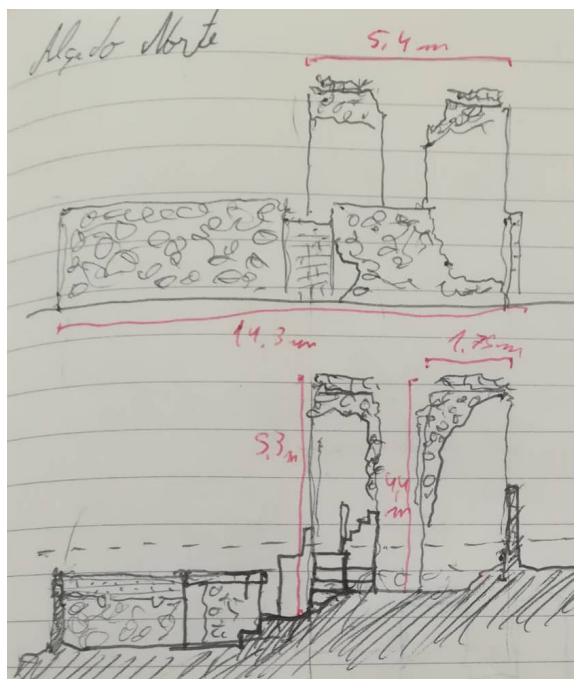 Alçado Norte
5,4 m
14,3 m
1,75 m
5,3 m
4,4 m